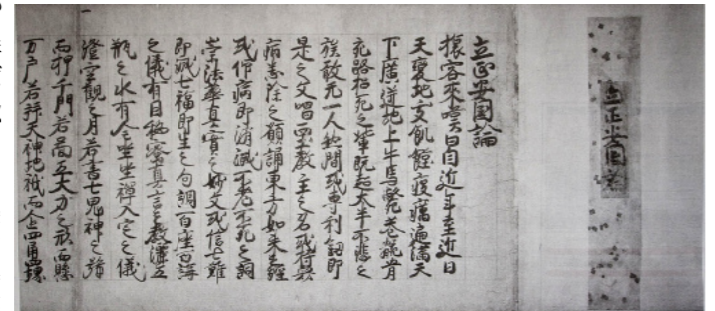 立正安国論
立正安国論
旅客來嘆曰自近年至近日
天變地夭飢饉疫癘遍満天
下廣迸地上牛馬斃巷骸骨
充路招死之輩既超大半不悲之
族敢无一人然間或専利剣即
是之文唱西土教主之名或恃衆
病悉除之願誦東方如来之經
或仰病即消滅不老不死之詞
崇法華真實之妙文或信七難
即滅七福即生之句調百座百講
之儀有因秘密真言之教灑五
瓶之水有全坐禅入定之儀
澄空觀之月若書七鬼神之号
而押千門若図五大力之形而懸
万戸若拝天神地祇而企四角四堺